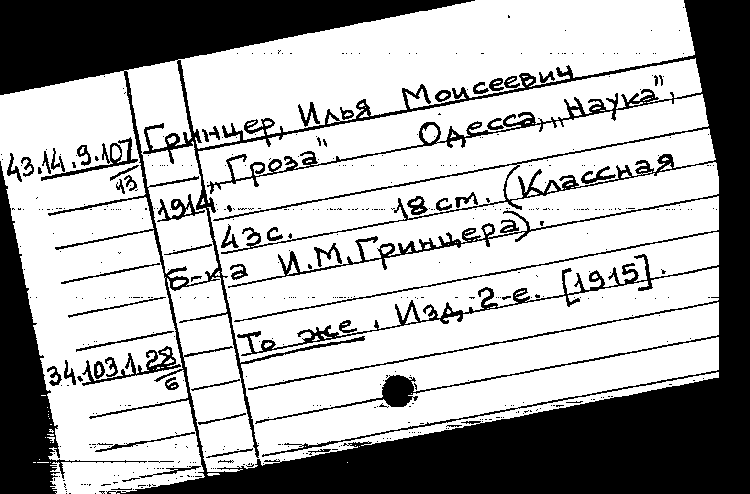 Гринцер, Илья Моисеевич
43.14.9.107/13
„Гроза". Одесса, „Наука",
1914.
43с. 18 см. (Классная
б-ка И.М.Гринцера).
То же. Изд. 2-е. [1915].
34.103.1.28/6